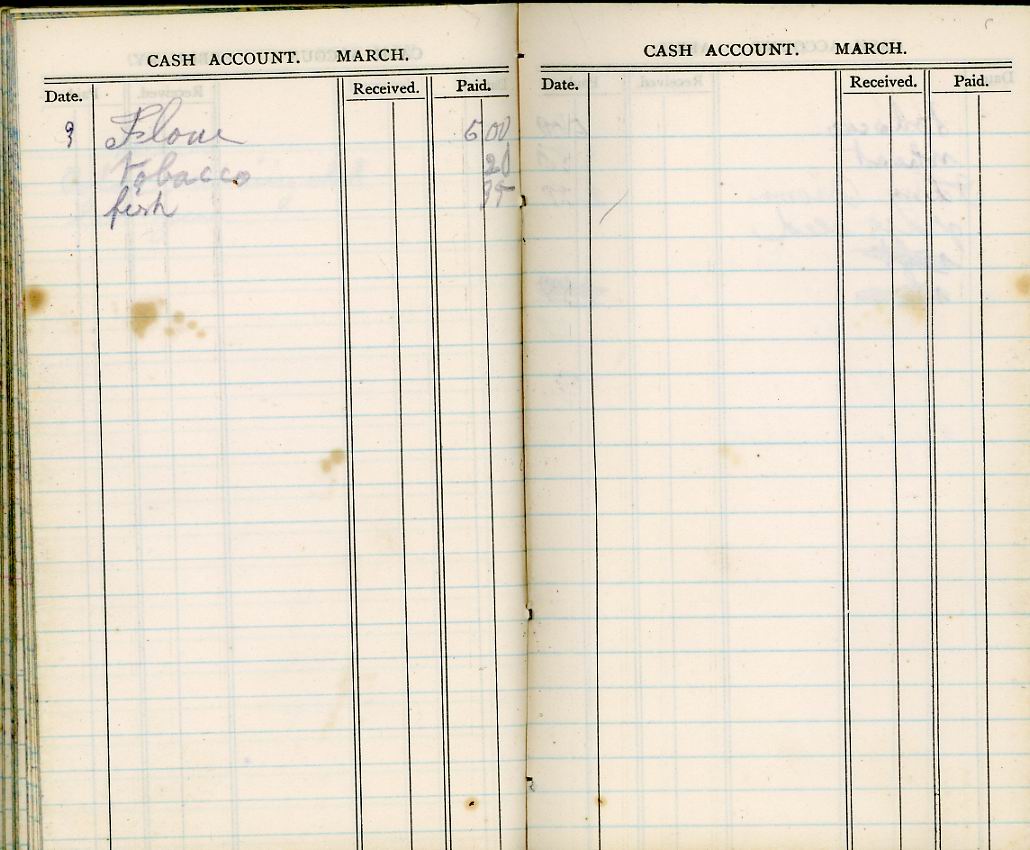 CASH ACCOUNT. MARCH.
Date. Received. Paid.
3 Flour 6 00
tobacco 20
fish
CASH ACCOUNT. MARCH.
Date. Received. Paid.